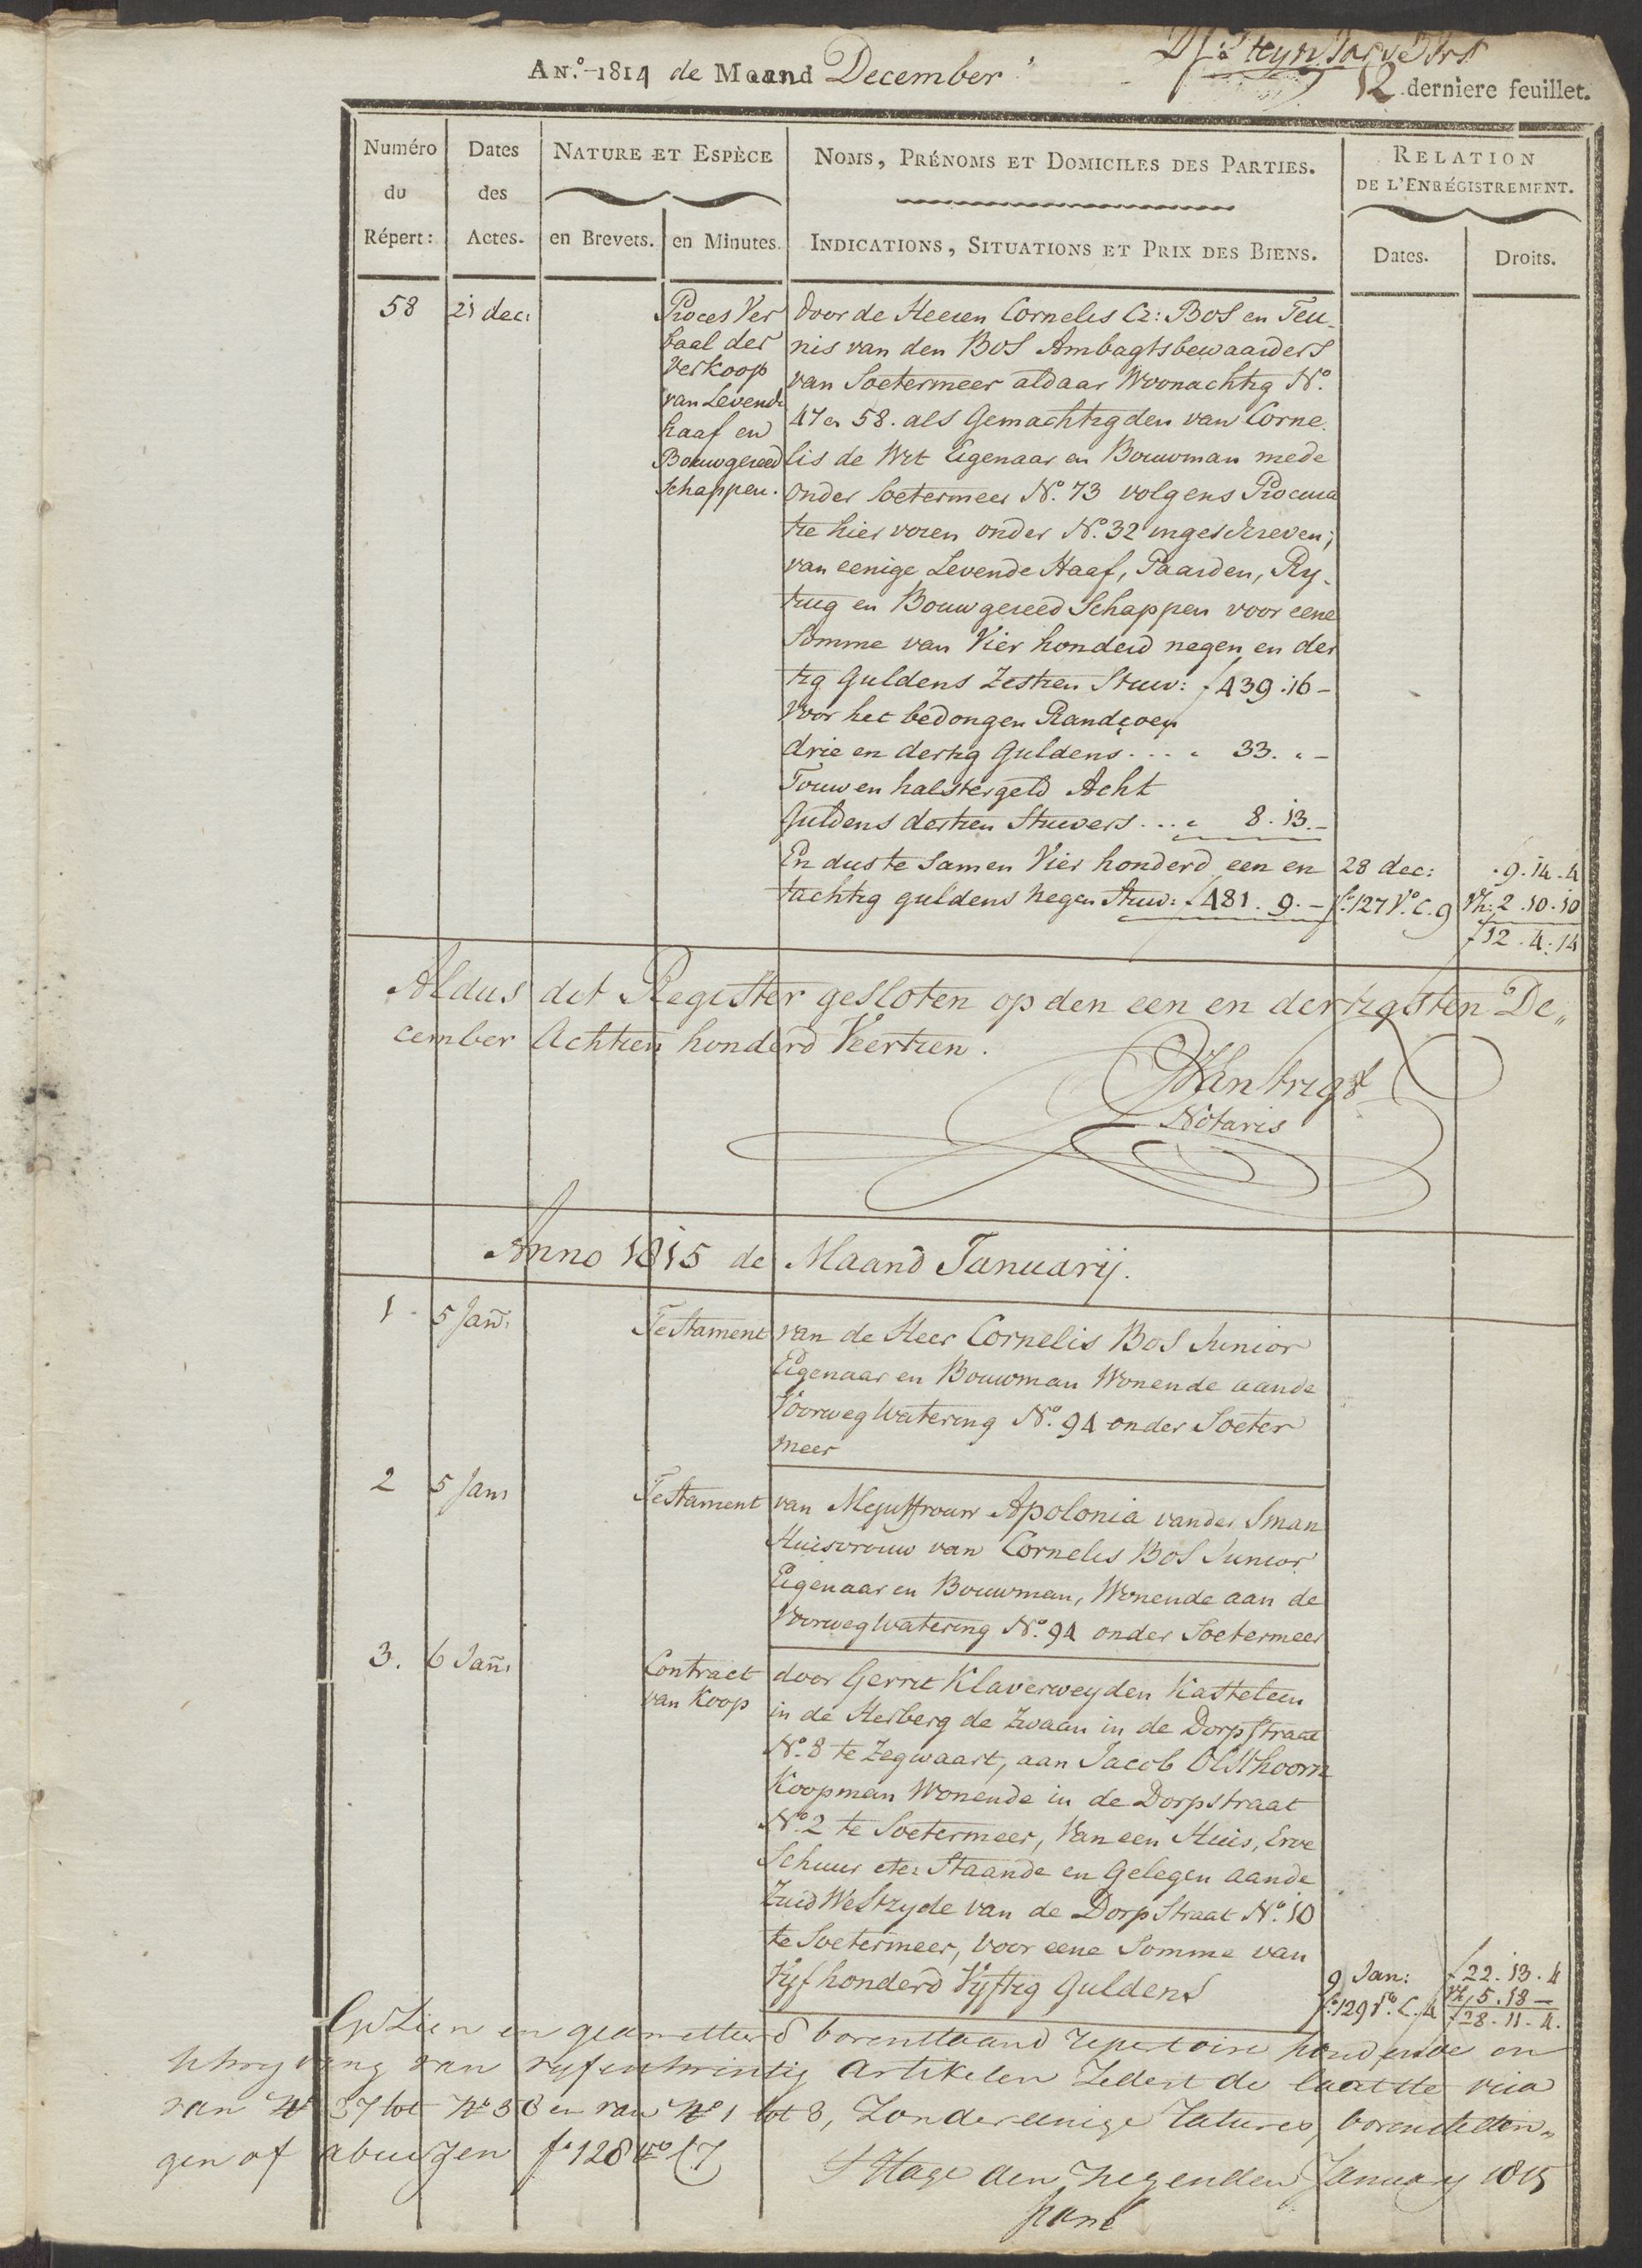 An.º 1814 de Maand December
12 derniere feuillet.
Numéro du Répert:
Dates des Actes.
NATURE ET ESPÈCE
en Brevets. en Minutes.
NOMS, PRÉNOMS ET DOMICILES DES PARTIES.
INDICATIONS, SITUATIONS ET PRIX DES BIENS.
RELATION
DE L'ENRÉGISTREMENT.
Dates. Droits.
58 21 dec:
Proces Ver
baal der
Verkoop
van Levende
haaf en
Bouwgereed
schappen.
Door de Heeren Cornelis Cz: Bos en Teu-
nis van den Bos Ambagtsbewaarders
van Soetermeer aldaar Woonachtig Nº.
47 en 58. als Gemachtigden van Corne
lis de Wit Eigenaar en Bouwman mede
onder Soetermeer Nº. 73 volgens Procura
tie hier voren onder Nº. 32 ingeschreven;
van eenige Levende Haaf, Paarden, Ry-
tuig en Bouwgereedschappen voor eene
Somme van Vier honderd negen en der
tig Guldens Zestien Stuiv: f 439.16-
Voor het bedongen Randçoen
drie en dertig Guldens . . . " 33. " -
Touw en halstergeld Acht
Guldens dertien Stuivers . . . " 8.13.-
En dus te Samen Vier honderd een en 28 dec: . 9.14.4
tachtig guldens negen Stuiv: f 481. 9.- fº. 127 Vº. C. 9 Vh: 2.10.10
f 12.4.14
Aldus dit Register gesloten op den een en dertigsten De„
cember Achtien honderd Veertien.
Notaris
Anno 1815 de Maand Januarij.
1 5 Jan:
Testament van de Heer Cornelis Bos Junior
Eigenaar en Bouwman Wonende aande
Voorweg Watering Nº. 94 onder Soeter
meer
2 5 Jan:
Testament van Mejuffrouw Apolonia vander Sman
Huisvrouw van Cornelis Bos Junior
Eigenaar en Bouwman, Wonende aan de
Voorweg Watering Nº. 94 onder Soetermeer
3. 6 Jan:
Contract
van Koop
door Gerrit Klaverweyden Kastelein
in de Herberg de Zwaan in de Dorpstraat
Nº. 8 te Zegwaart, aan Jacob Olsthoorn
Koopman Wonende in de Dorpstraat
Nº. 2 te Soetermeer, Van een Huis, Erve
Schuur etc: Staande en Gelegen aande
Zuid Westzyde van de Dorp Straat Nº. 10
te Soetermeer, voor eene Somme van
Vyf honderd Vyftig Guldens 9 Jan: f 22.13.4
fº. 129 Vº. C. 4 Vh: 5.18 -
f 28.11.4.
Gezien en geamitteerd bovenstaand repertoire houdende in
schryving van vyfentwintig artikelen Zedert de laatste visa
van Nº 37 tot Nº 58 en van Nº 1 tot 3, Zonder eenige
gen of abuizen fº 128 Vº C 7
S'Hage den negenden January 1815